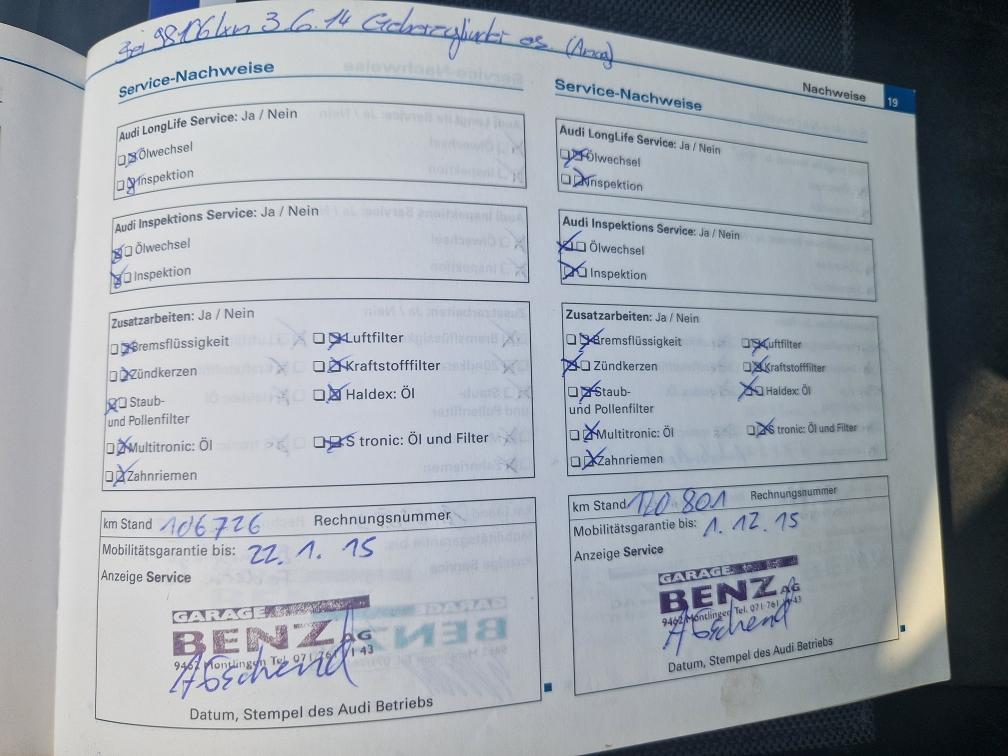 Bei 98106 km 3.6.14
Service-Nachweise
Audi LongLife Service: Ja / Nein
Ölwechsel
Inspektion
Audi Inspektions Service: Ja / Nein
Ölwechsel
Inspektion
Zusatzarbeiten: Ja / Nein
Bremsflüssigkeit Luftfilter
Zündkerzen Kraftstofffilter
Staub- Haldex: Öl
und Pollenfilter
Multitronic: Öl S tronic: Öl und Filter
Zahnriemen
km Stand 106726 Rechnungsnummer
Mobilitätsgarantie bis: 22.1.15
Anzeige Service
GARAGE
BENZ AG
9462 Montlingen Tel. 071 761 11 43
Datum, Stempel des Audi Betriebs
Nachweise 19
Service-Nachweise
Audi LongLife Service: Ja / Nein
Ölwechsel
Inspektion
Audi Inspektions Service: Ja / Nein
Ölwechsel
Inspektion
Zusatzarbeiten: Ja / Nein
Bremsflüssigkeit Luftfilter
Zündkerzen Kraftstofffilter
Staub- Haldex: Öl
und Pollenfilter
Multitronic: Öl S tronic: Öl und Filter
Zahnriemen
km Stand 120.801 Rechnungsnummer
Mobilitätsgarantie bis: 1.12.15
Anzeige Service
GARAGE
BENZ AG
9462 Montlingen Tel. 071 761 11 43
Datum, Stempel des Audi Betriebs